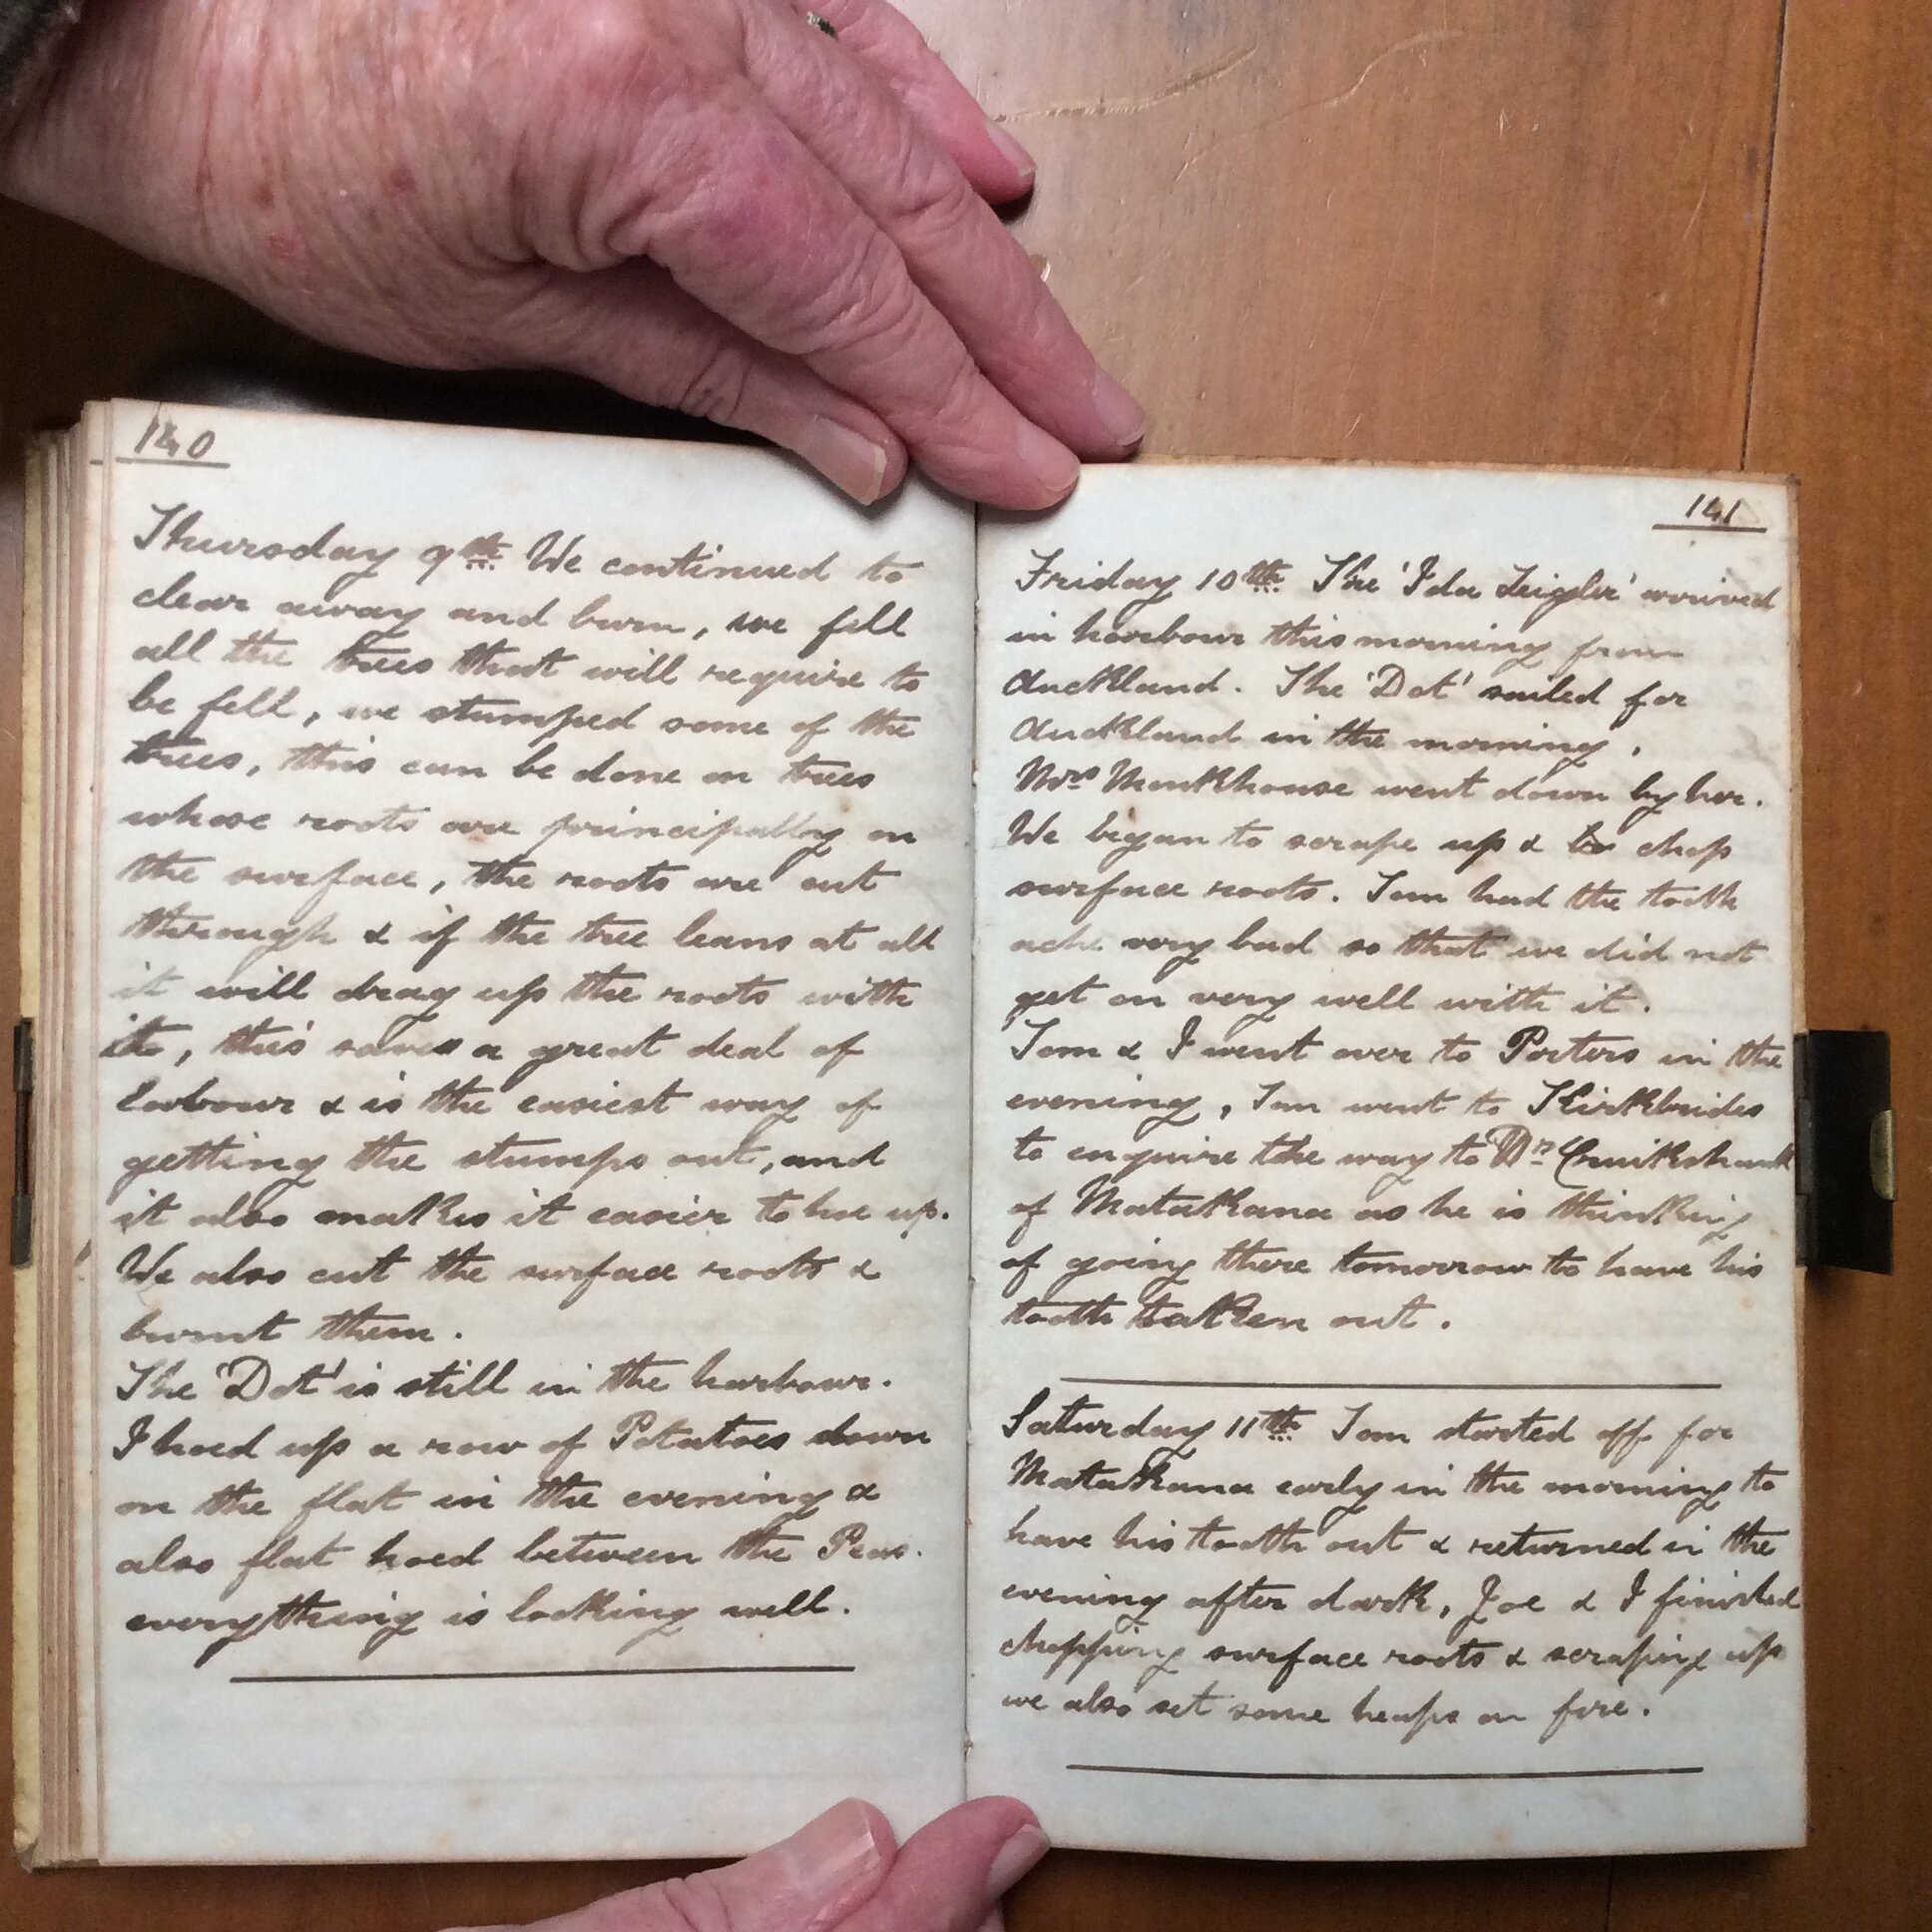 140
Thursday 9th We continued to
clear away and burn, we fell
all the trees that will require to
be fell, we stumped some of the
trees, this can be done on trees
whose roots are principally on
the surface, the roots are cut
through & if the tree leans at all
it will drag up the roots with
it, this saves a great deal of
labour & is the easiest way of
getting the stumps out, and
it also makes it easier to hoe up.
We also cut the surface roots &
burnt them.
The 'Dot' is still in the harbour.
I hoed up a row of Potatoes down
on the flat in the evening &
also flat hoed between the Peas.
everything is looking well.
141
Friday 10th The 'Ida Zeigler' arrived
in harbour this morning from
Auckland. The 'Dot' sailed for
Auckland in the morning.
Mrs Monkhouse went down by her.
We began to scrape up & to chop
surface roots. Tom had the tooth
ache very bad so that we did not
get on very well with it.
Tom & I went over to Porters in the
evening, Tom went to Kirkbrides
to enquire the way to Dr Cruikshank
of Matakana as he is thinking
of going there tomorrow to have his
tooth taken out.
Saturday 11th Tom started off for
Matakana early in the morning to
have his tooth out & returned in the
evening after dark, Joe & I finished
chopping surface roots & scraping up
we also set some heaps on fire.